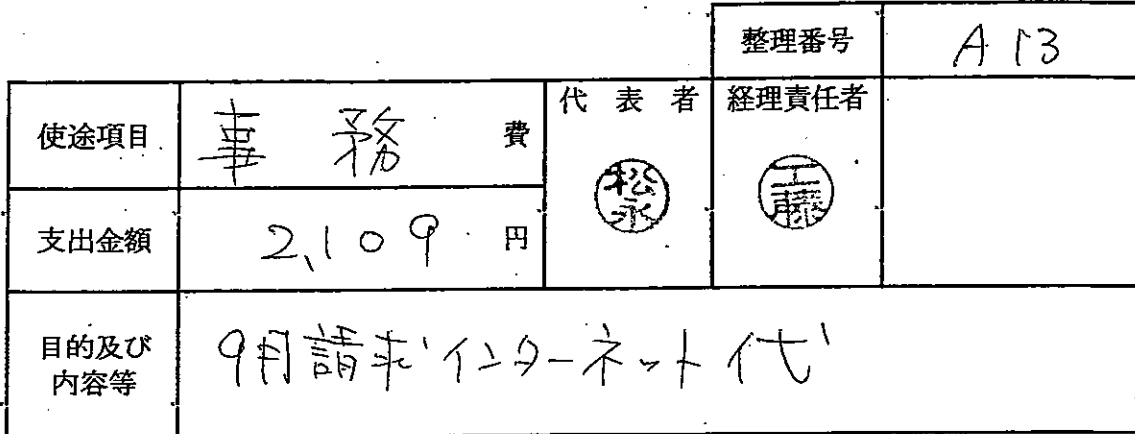 整理番号 A13
使途項目 事務費
代表者 経理責任者
松永 工藤
支出金額 2,109円
目的及び内容等
9月請求インターネット代